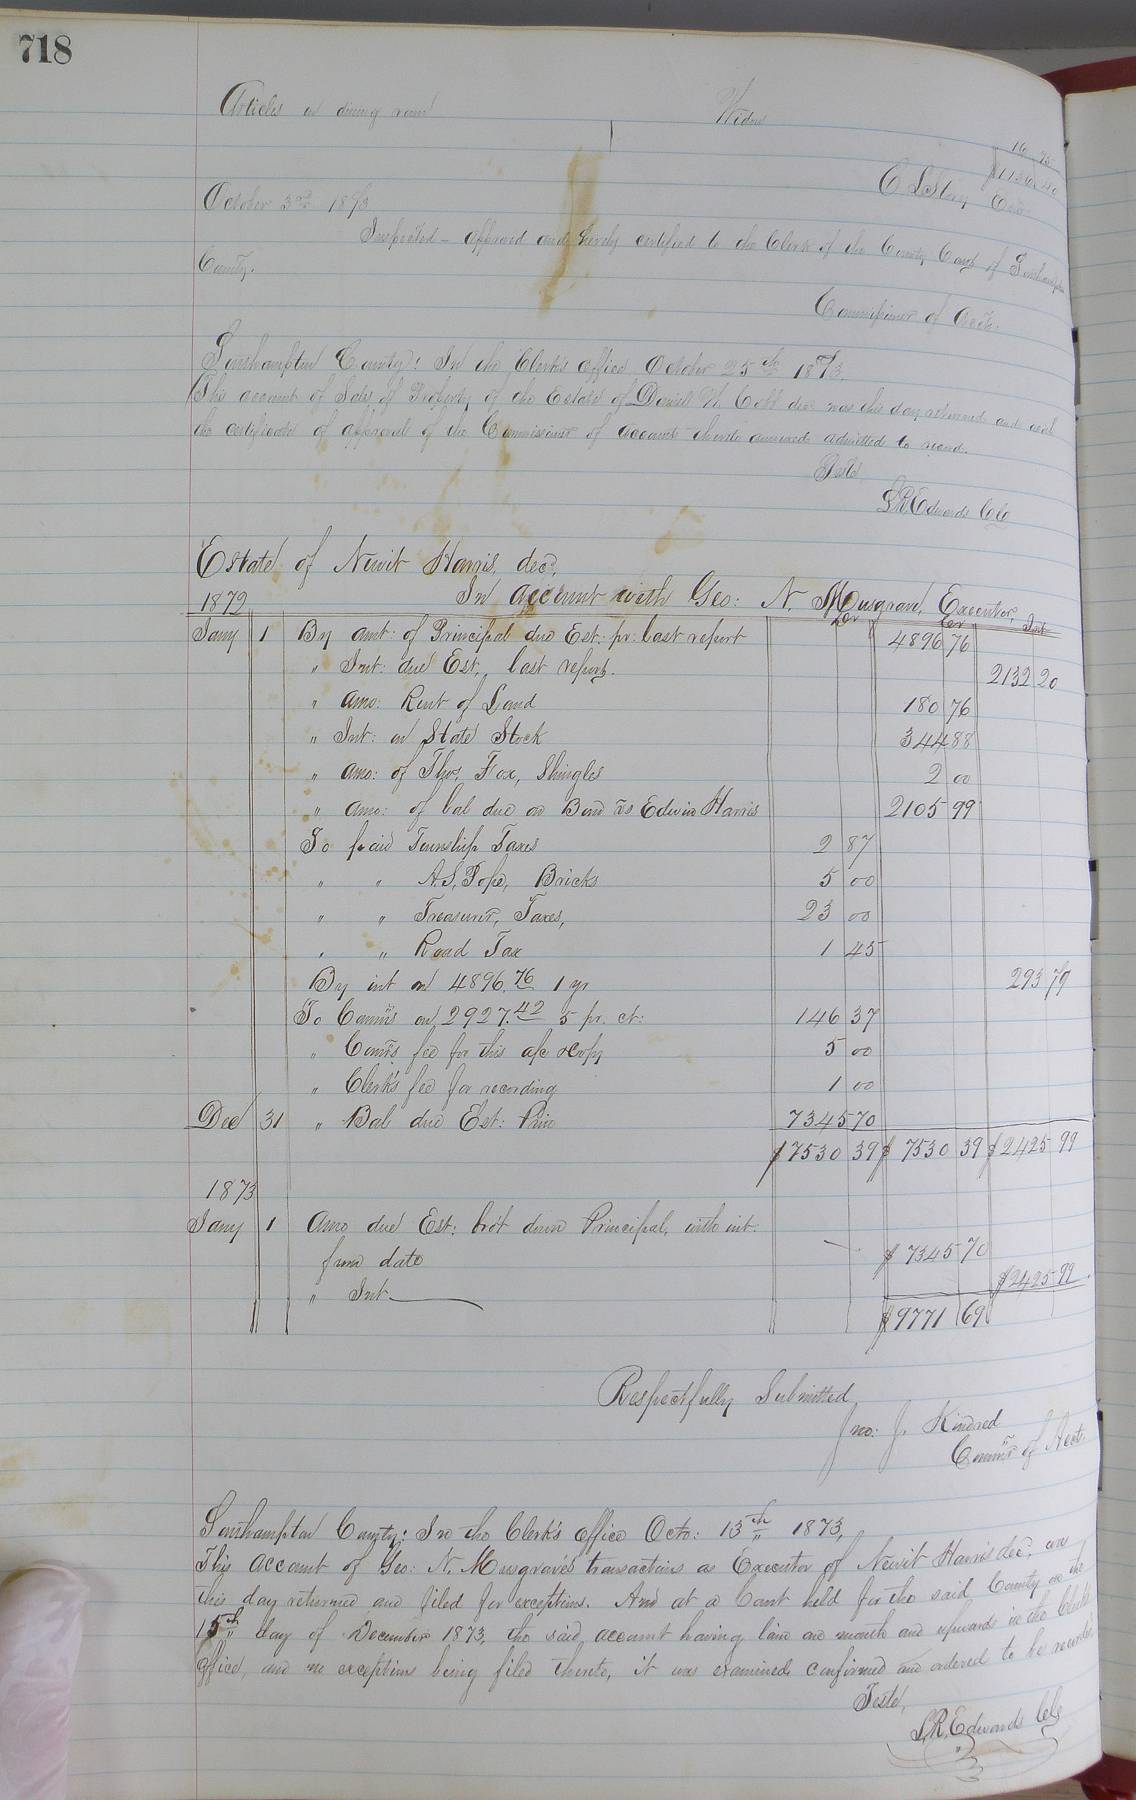 718
Articles in dining room Widow
16 75
$1136 40
C L Story Exor
October 3rd 1873
Inspected - approved and hereby certified to the Clerk of the County Court of Southampton
County.
Commissioner of Accts.
Southampton County: In the Clerk's office October 25th 1873.
This account of Sales of Property of the Estate of W. Cobb decd was this day returned and with
the certificate of approval of the Commissioner of accounts thereto annexed admitted to record.
Teste
L R Edwards Clk
Estate of Newit Harris, decd,
In account with Geo: N. Musgrave, Executor,
1872 Dr Cr Int
Jany 1 By amt: of Principal due Est: pr: last report 4896 76
" Int: due Est, last report. 2132 20
" Amo: Rent of Land 180 76
" Int: on State Stock 344 88
" Amo: of Thos. Fox, Shingles 2 00
" Amo: of bal due on Bond vs Edwin Harris 2105 99
To paid Township Taxes 2 87
" " A.S. Pope, Bricks 5 00
" " Treasurer, Taxes, 23 00
" " Road Tax 1 45
By int on 4896.76 1 yr 293 79
To Commrs on 2927.42 5 pr. ct: 146 37
" Comrs fee for this a/c & copy 5 00
" Clerk's fee for recording 1 00
Dec 31 " Bal due Est: Prin 7345 70
$7530 39 $7530 39 $2425 99
1873
Jany 1 Amo due Est: bro't down Principal, with int:
from date $7345 70
" Int $2425 99
$9771 69
Respectfully Submitted
Jno: J. Kindred
Commr of Acct.
Southampton County: In the Clerk's office Octo: 13th 1873,
This account of Geo: N. Musgrave's transactions as Executor of Newit Harris decd, was
this day returned and filed for exceptions. And at a Court held for the said County on the
15th day of December 1873, the said account having lain one month and upwards in the Clerk's
office, and no exceptions being filed thereto, it was examined confirmed and ordered to be recorded
Teste,
L. R. Edwards Clk